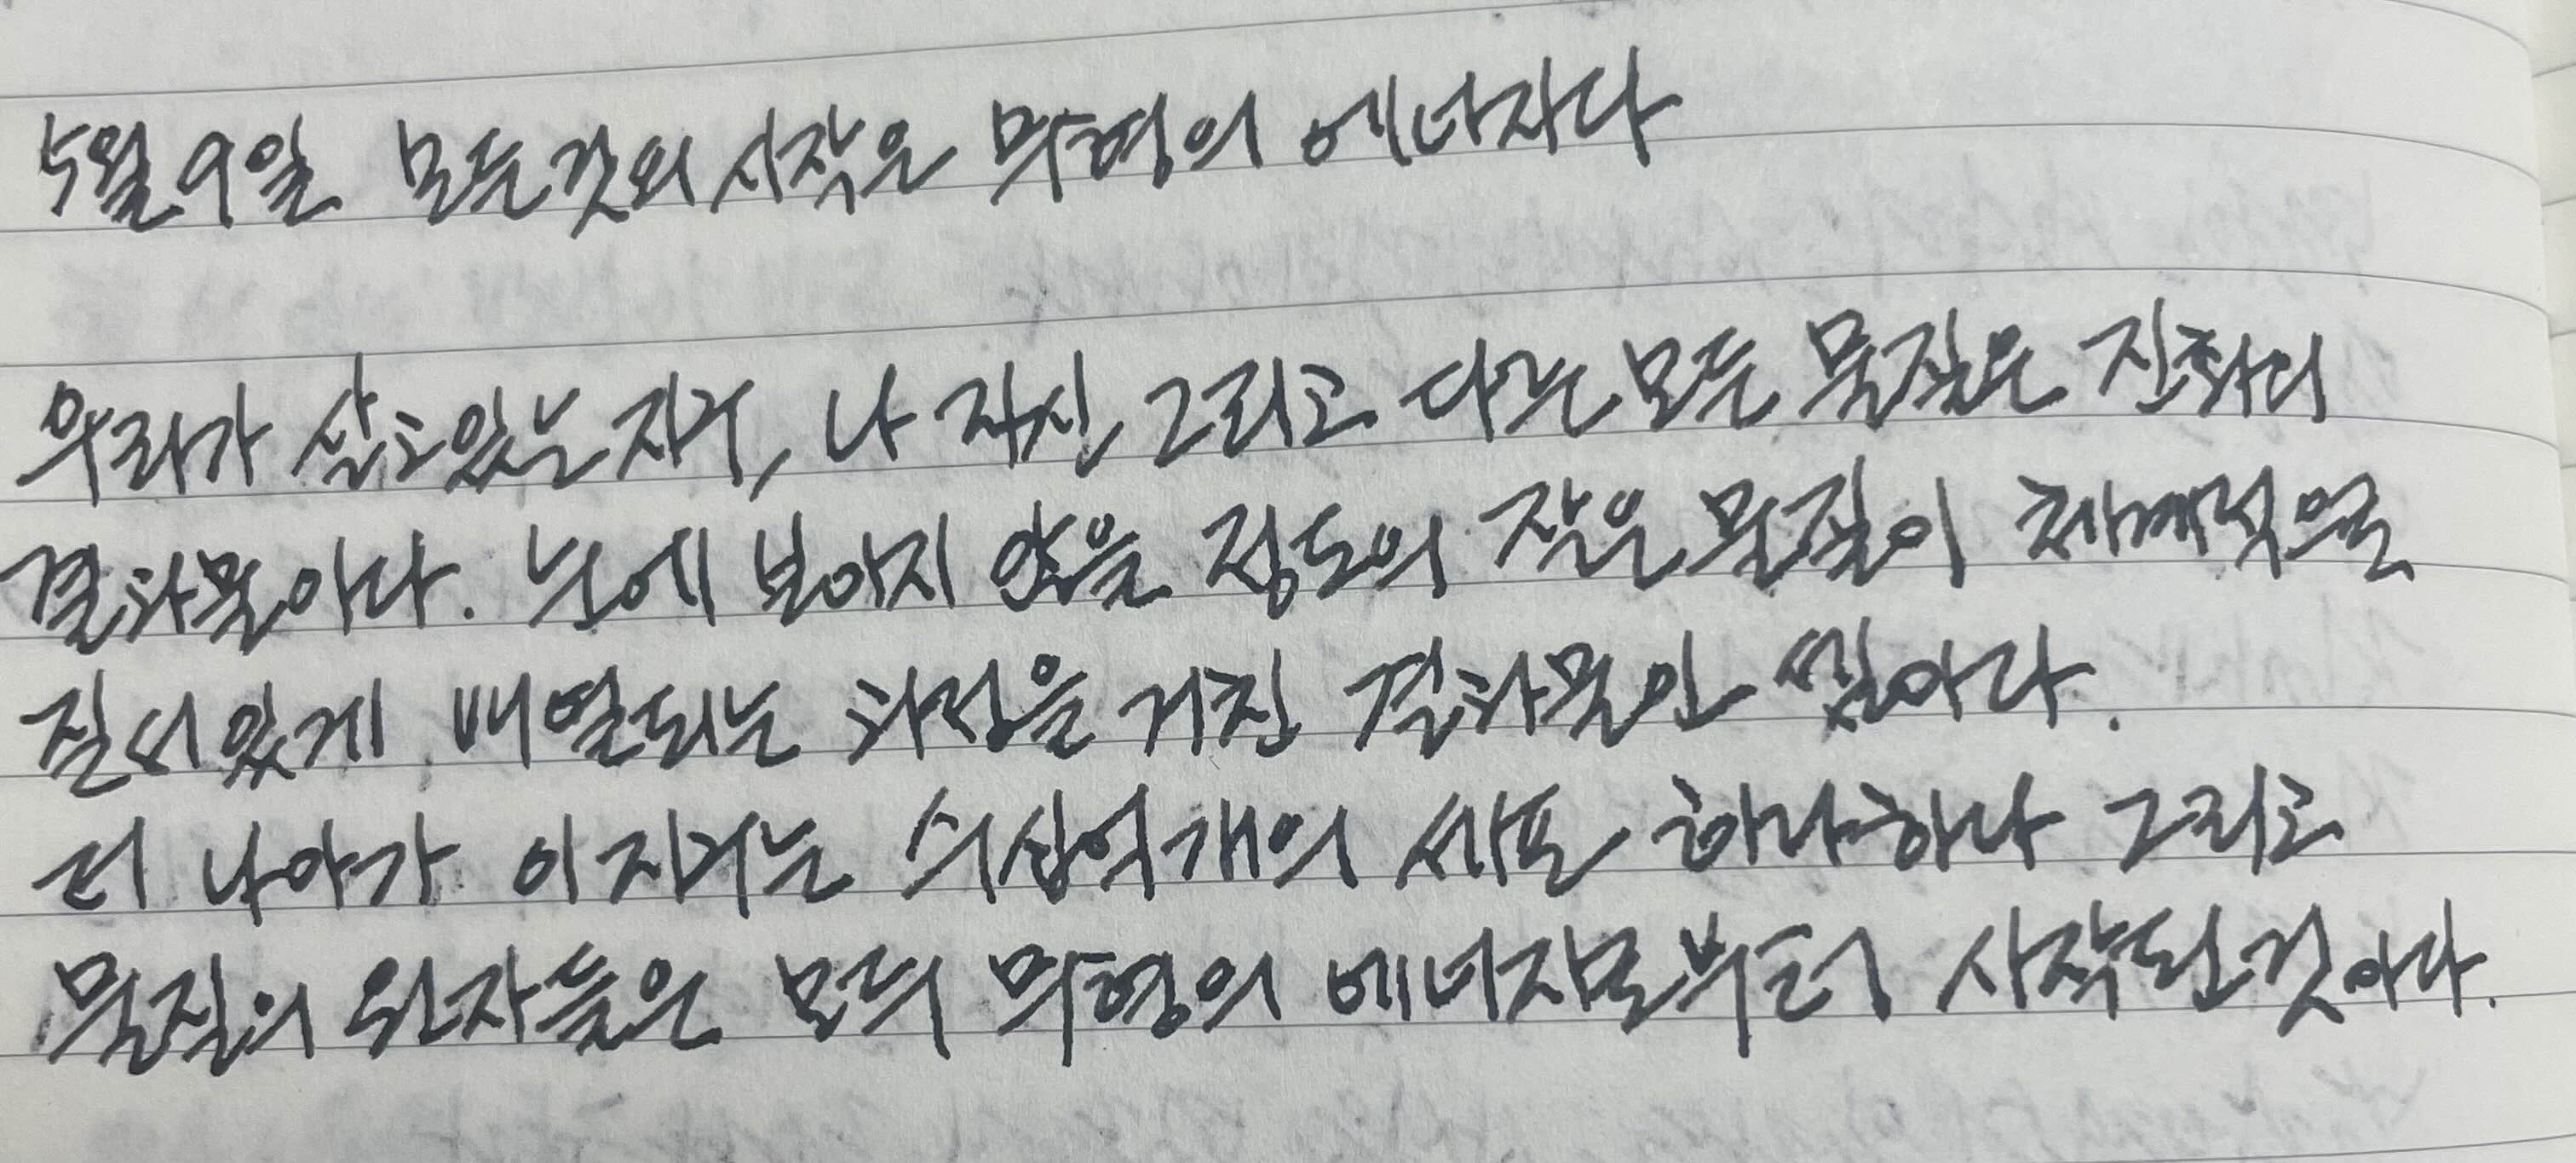 5월 9일 모든것의 시작은 무형의 에너지다
우리가 살고있는 지구, 나 자신 그리고 다른 모든 물질은 진화의
결과물이다. 눈에 보이지 않을 정도의 작은 물질이 체계적으로
질서있게 배열되는 과정을 거친 결과물인 셈이다.
더 나아가 이 지구는 수십억개의 세포 하나하나 그리고
물질의 원자들은 모두 무형의 에너지로부터 시작된것이다.